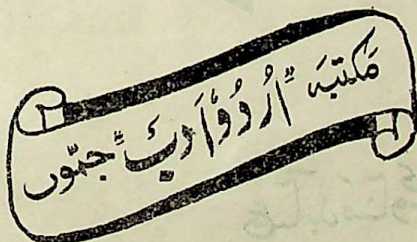 مکتبہ "اُردو ادب" جموّں